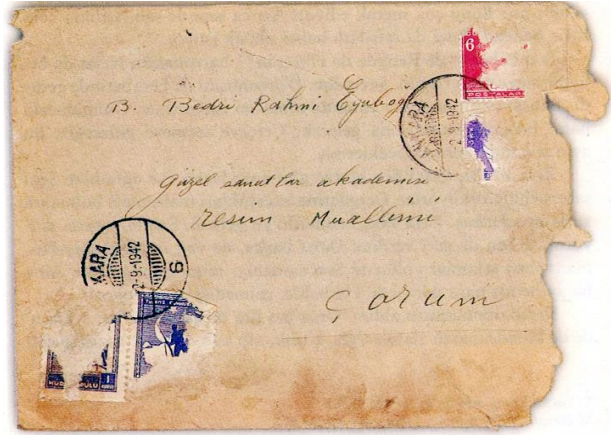 6
POSTALAR
ANKARA
2-9-1942
B. Bedri Rahmi Eyuboğlu
Güzel sanatlar akademisi
Resim Muallimi
Çorum
KARA
2-9-1942
6
1